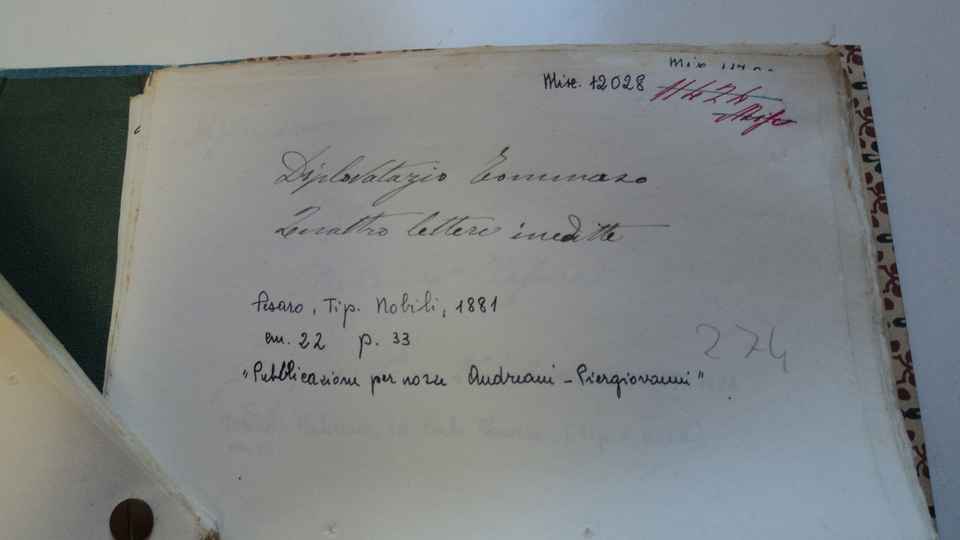 Misc. 12028
Diplovatazio Tommaso
Quattro lettere inedite
Pesaro, Tip. Nobili, 1881
cm. 22 p. 33
"Pubblicazione per nozze Andreani - Piergiovanni"
274